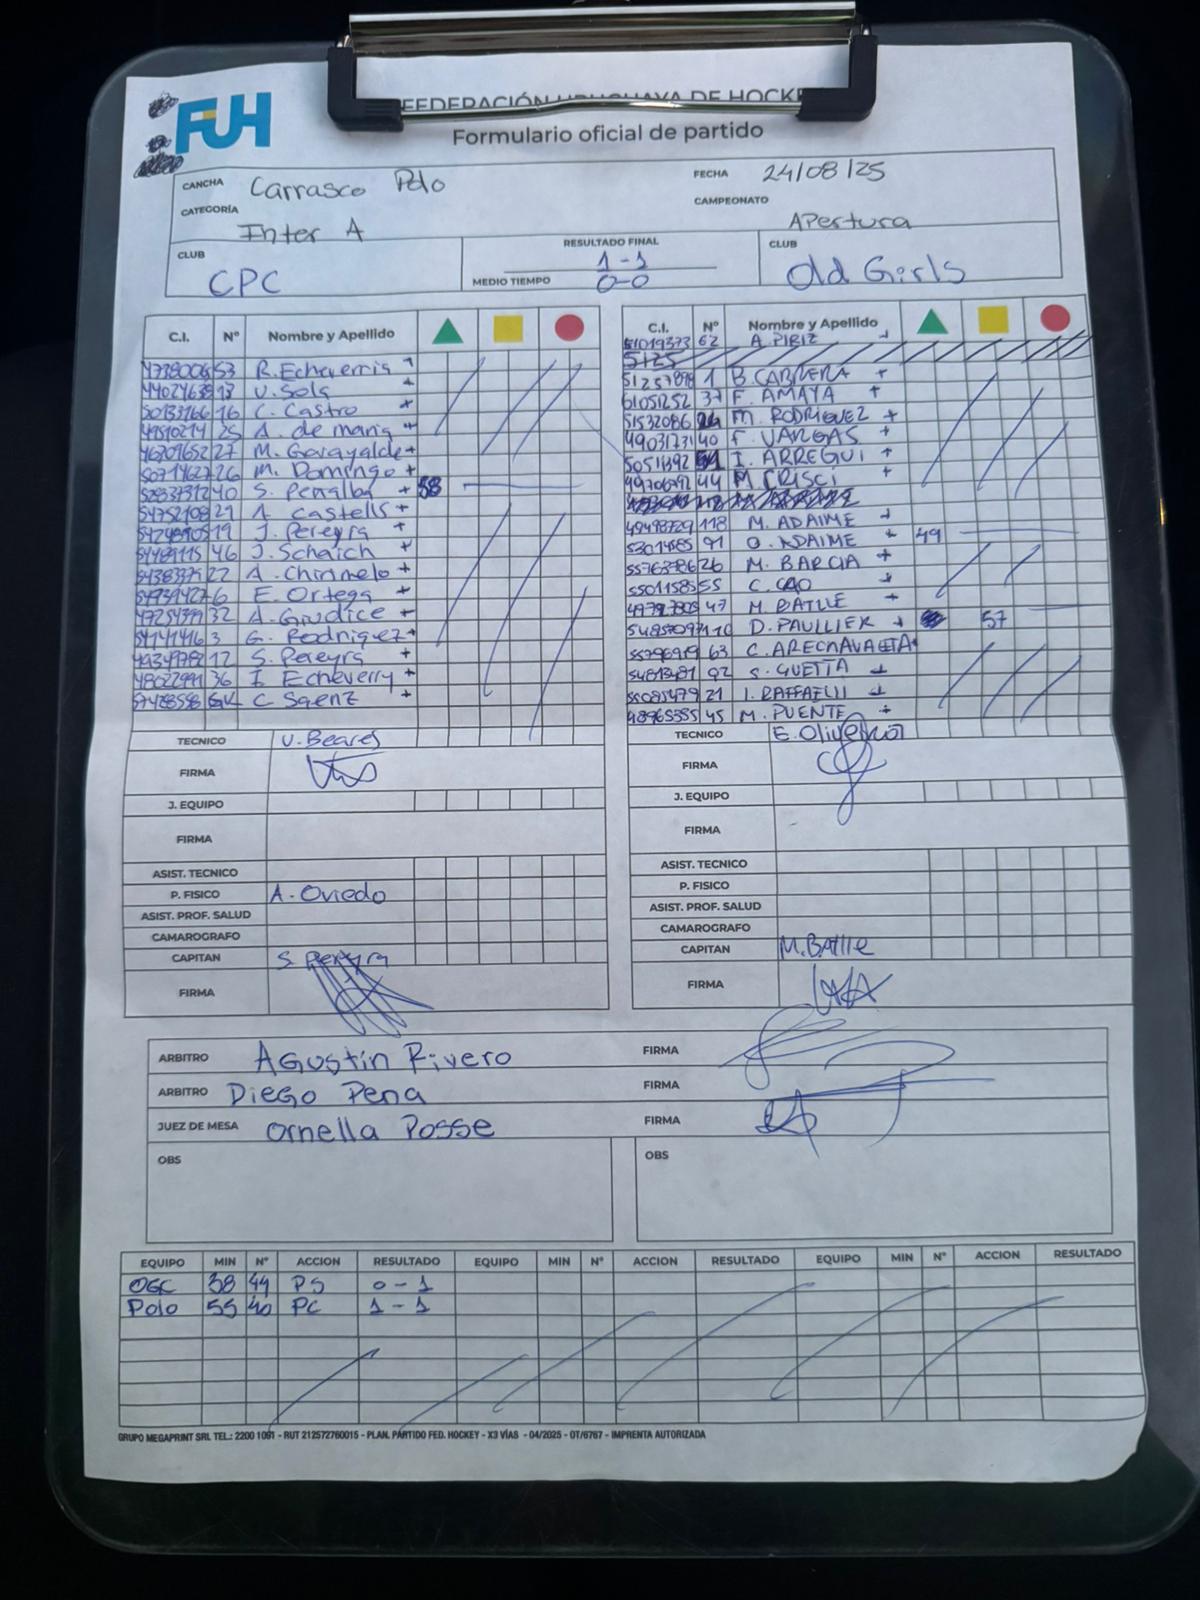 FUH
FEDERACIÓN URUGUAYA DE HOCKE
Formulario oficial de partido
CANCHA Carrasco Polo FECHA 24/08/25
CATEGORÍA Inter A CAMPEONATO Apertura
CLUB CPC RESULTADO FINAL 1-1 CLUB Old Girls
MEDIO TIEMPO 0-0
C.I. Nº Nombre y Apellido
53 R. Echeverria +
13 V. Sola +
50133766 16 C. Castro +
49510214 25 A. de maria +
27 M. Garayalde +
26 M. Domingo +
40 S. Penalba + 58
54752108 21 A. Castells +
19 J. Pereyra +
54489115 46 J. Schaich +
22 A. Chirimelo +
6 E. Ortega +
32 A. Giudice +
3 G. Rodriguez +
12 S. Pereyra +
36 I. Echeverry +
GK C Saenz +
TECNICO V. Beares
FIRMA
J. EQUIPO
FIRMA
ASIST. TECNICO
P. FISICO A. Oviedo
ASIST. PROF. SALUD
CAMAROGRAFO
CAPITAN S. Pereyra
FIRMA
C.I. Nº Nombre y Apellido
51019373 62 A. PIRIZ +
1 B. CABRERA +
61051252 37 F. AMAYA +
51532086 M. RODRIGUEZ +
49031731 40 F. VARGAS +
50511392 I. ARREGUI +
49706792 44 M. CRISCI +
49498729 118 M. ADAIME +
91 O. ADAIME + 49
55763786 26 M. BARCIA +
55011585 55 C. CAO +
47 M. BATLLE +
D. PAULLIER + 57
55796919 63 C. ARECHAVALETA +
54813481 92 S. GUETTA +
55085479 21 I. RAFFAELLI +
48965355 45 M. PUENTE +
TECNICO
FIRMA
J. EQUIPO
FIRMA
ASIST. TECNICO
P. FISICO
ASIST. PROF. SALUD
CAMAROGRAFO
CAPITAN M. Batlle
FIRMA
ARBITRO Agustín Rivero FIRMA
ARBITRO Diego Pena FIRMA
JUEZ DE MESA Ornella Posse FIRMA
OBS OBS
EQUIPO MIN Nº ACCION RESULTADO EQUIPO MIN Nº ACCION RESULTADO EQUIPO MIN Nº ACCION RESULTADO
OGC 38 44 PS 0-1
Polo 55 40 PC 1-1
GRUPO MEGAPRINT SRL TEL.: 2200 1091 - RUT 212572760015 - PLAN. PARTIDO FED. HOCKEY - X3 VÍAS - 04/2025 - OT/6767 - IMPRENTA AUTORIZADA